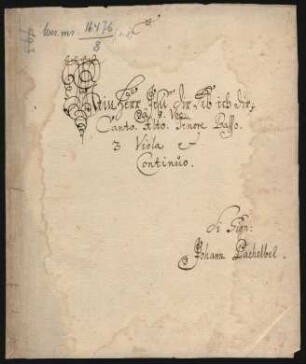 16476
8
Mein Herr Jesu dir leb ich dir
Canto. Alto. Tenore Basso.
3 Viola e
Continuo.
di Sign:
Johann Pachelbel.